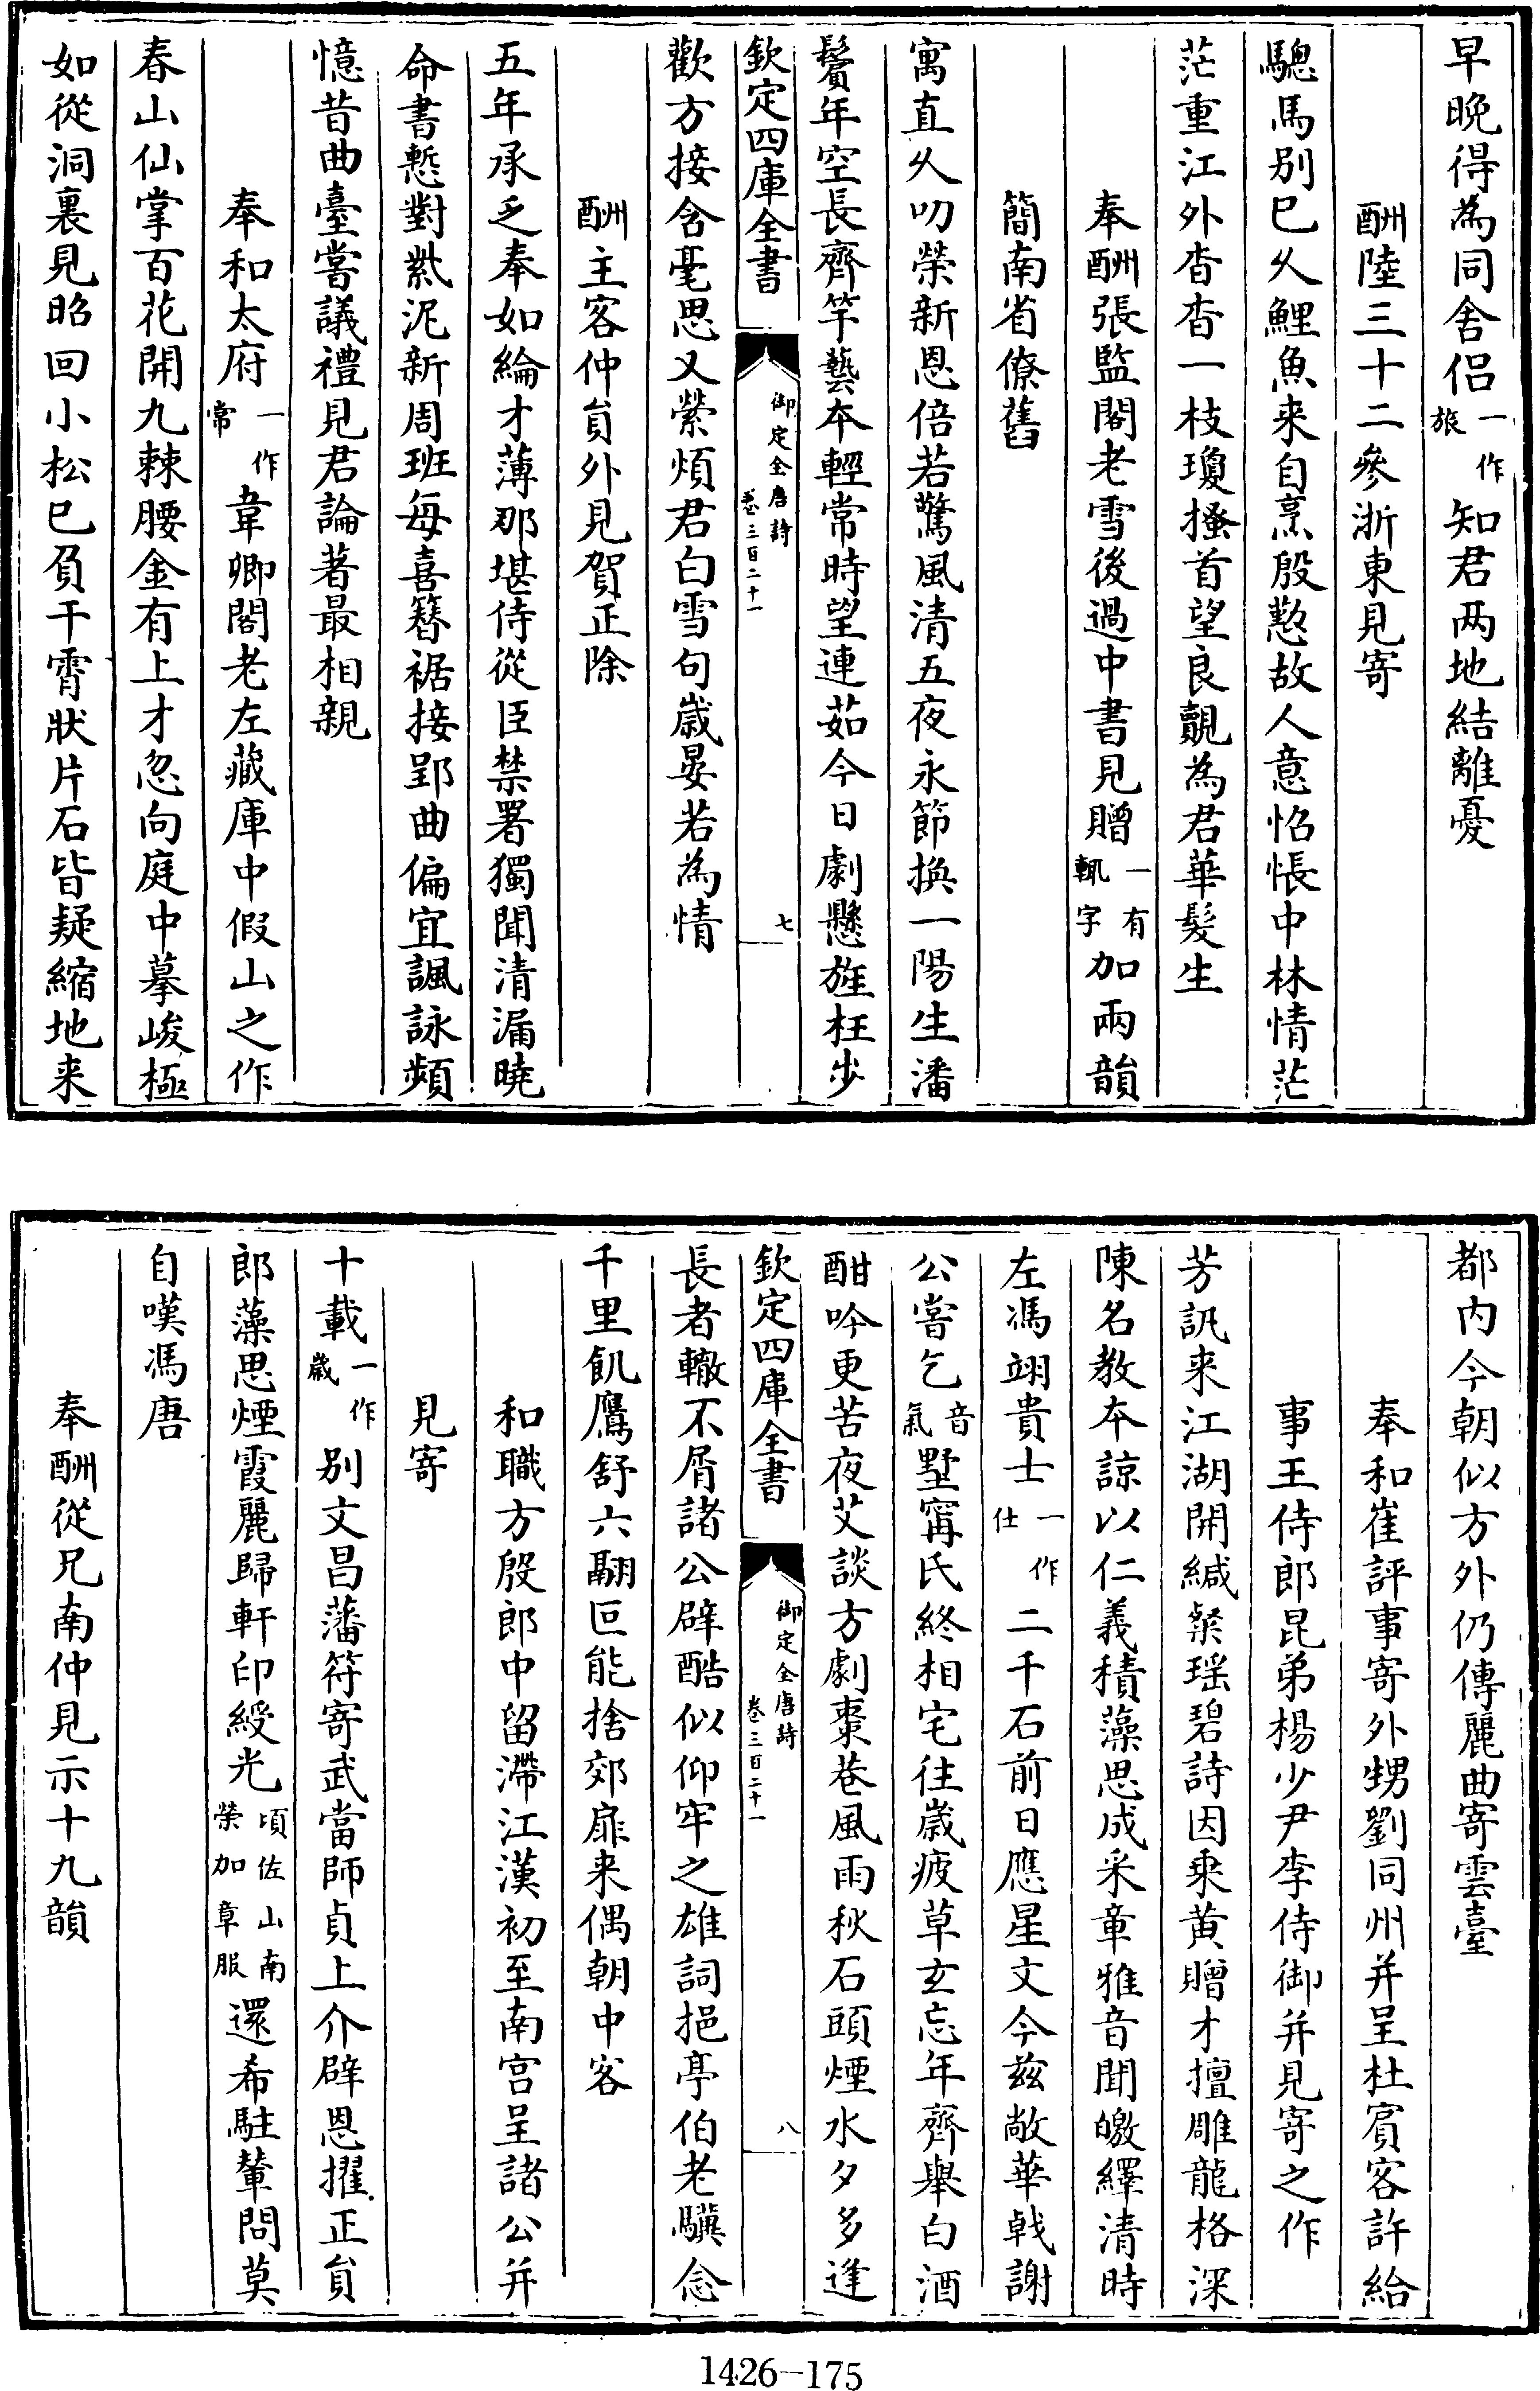 早晚得為同舍侣一作旅知君两地結離憂
酬陸三十二參浙東見寄
驄馬别已乆鯉魚来自烹殷懃故人意怊悵中林情茫
茫重江外杳杳一枝瓊搔首望良覿為君華髮生
奉酬張監閣老雪後過中書見贈一有輒字加兩韻
簡南省僚舊
寓直乆叨榮新恩倍若驚風清五夜永節換一陽生潘
鬢年空長齊竽藝本輕常時望連茹今日劇懸旌枉步
欽定四庫全書
御定全唐詩
卷三百二十一
七
歡方接含毫思又縈煩君白雪句嵗晏若為情
酬主客仲貟外見賀正除
五年承乏奉如綸才薄那堪侍從臣禁署獨聞清漏曉
命書慙對紫泥新周班每喜簮裾接郢曲偏宜諷詠頻
憶昔曲臺嘗議禮見君論著最相親
奉和太府一作常韋卿閣老左藏庫中假山之作
春山仙掌百花開九棘腰金有上才忽向庭中摹峻極
如從洞裏見昭回小松已負干霄狀片石皆疑縮地来
都内今朝似方外仍傳麗曲寄雲臺
奉和崔評事寄外甥劉同州并呈杜賓客許給
事王侍郎昆弟楊少尹李侍御并見寄之作
芳訊来江湖開緘粲瑶碧詩因乘黄贈才擅雕龍格深
陳名教本諒以仁義積藻思成采章雅音聞皦繹清時
左馮翊貴士一作仕二千石前日應星文今兹敞華㦸謝
公嘗乞音氣墅甯氏終相宅往嵗疲草玄忘年齊舉白酒
酣吟更苦夜艾談方劇棗巷風雨秋石頭煙水夕多逢
欽定四庫全書
御定全唐詩
卷三百二十一
八
長者轍不屑諸公辟酷似仰牢之雄詞挹亭伯老驥念
千里飢鷹舒六翮叵能捨郊扉来偶朝中客
和職方殷郎中留滯江漢初至南宫呈諸公并
見寄
十載一作嵗别文昌藩符寄武當師貞上介辟恩擢正貟
郎藻思煙霞麗歸軒印綬光頃佐山南榮加章服還希駐輦問莫
自嘆馮唐
奉酬從兄南仲見示十九韻
1426-175